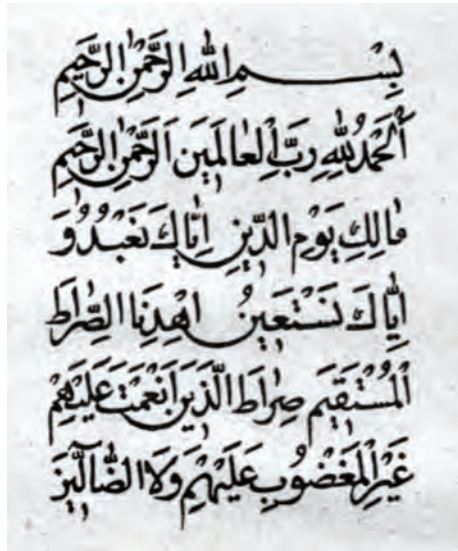 بِسْمِ اللهِ الرَّحْمٰنِ الرَّحِيمِ
اَلْحَمْدُ لِلّٰهِ رَبِّ الْعَالَمِينَ اَلرَّحْمٰنِ الرَّحِيمِ
مَالِكِ يَوْمِ الدِّينِ اِيَّاكَ نَعْبُدُ وَ
اِيَّاكَ نَسْتَعِينُ اِهْدِنَا الصِّرَاطَ
الْمُسْتَقِيمَ صِرَاطَ الَّذِينَ اَنْعَمْتَ عَلَيْهِمْ
غَيْرِ الْمَغْضُوبِ عَلَيْهِمْ وَلَا الضَّالِّينَ